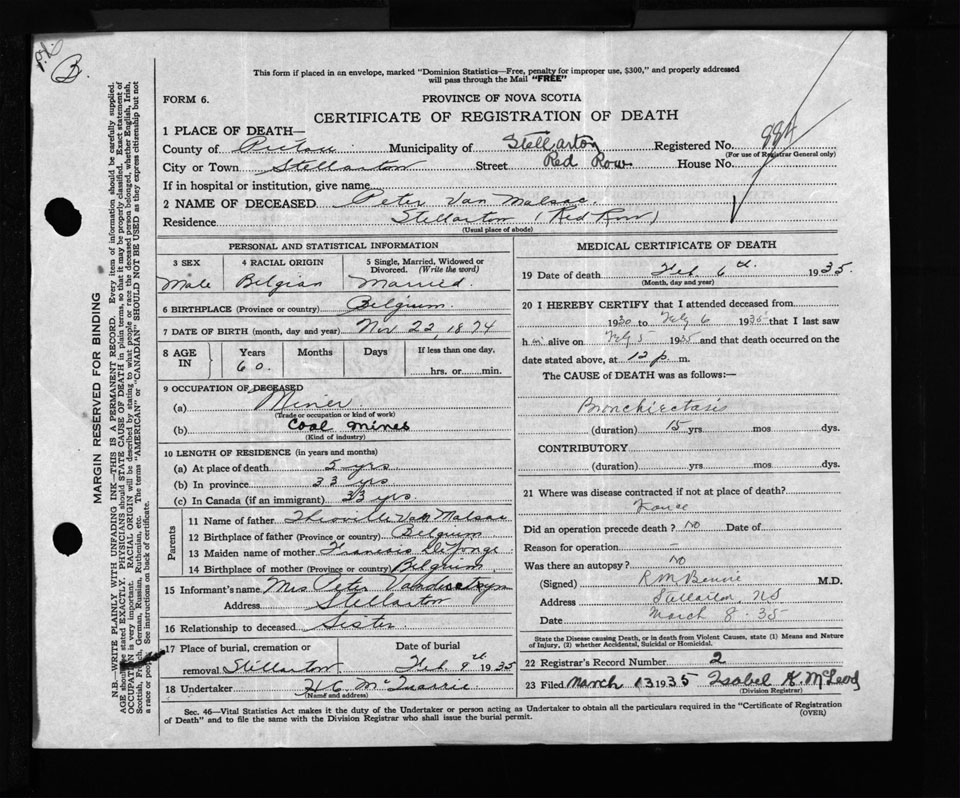 B.
This form if placed in an envelope, marked "Dominion Statistics—Free, penalty for improper use, $300," and properly addressed
will pass through the Mail "FREE"
FORM 6.
PROVINCE OF NOVA SCOTIA
CERTIFICATE OF REGISTRATION OF DEATH
1 PLACE OF DEATH—
County of Pictou Municipality of Stellarton Registered No.
(For use of Registrar General only)
City or Town Stellarton Street Red Row House No.
If in hospital or institution, give name
2 NAME OF DECEASED Peter Van Malsac.
Residence Stellarton (Red Row)
(Usual place of abode)
PERSONAL AND STATISTICAL INFORMATION
3 SEX 4 RACIAL ORIGIN 5 Single, Married, Widowed or Divorced. (Write the word)
Male Belgian Married.
6 BIRTHPLACE (Province or country) Belgium.
7 DATE OF BIRTH (month, day and year) Nov 22, 1874
8 AGE IN Years Months Days If less than one day.
60. hrs. or min.
9 OCCUPATION OF DECEASED
(a) Miner
(Trade or occupation or kind of work)
(b) Coal mines
(Kind of industry)
10 LENGTH OF RESIDENCE (in years and months)
(a) At place of death 5 yrs
(b) In province 33 yrs
(c) In Canada (if an immigrant) 33 yrs.
Parents
11 Name of father Van Malsac
12 Birthplace of father (Province or country) Belgium
13 Maiden name of mother Francois De Yonge
14 Birthplace of mother (Province or country) Belgium
15 Informant's name Mrs Peter
Address Stellarton
16 Relationship to deceased Sister
17 Place of burial, cremation or removal Stellarton Date of burial Feb 9th 1935
18 Undertaker H C McQuarrie
(Name and address)
MEDICAL CERTIFICATE OF DEATH
19 Date of death Feb. 6th 1935.
(Month, day and year)
20 I HEREBY CERTIFY that I attended deceased from
1930 to Feby 6 1935 that I last saw
h im alive on Feby 5 1935 and that death occurred on the
date stated above, at 12 p m.
The CAUSE of DEATH was as follows:—
Bronchiectasis
(duration) 15 yrs mos dys.
CONTRIBUTORY
(duration) yrs. mos. dys.
21 Where was disease contracted if not at place of death?
France
Did an operation precede death? No Date of
Reason for operation –
Was there an autopsy? No
(Signed) R M Benvie M.D.
Address Stellarton NS
Date March 8 35
State the Disease causing Death, or in death from Violent Causes, state (1) Means and Nature
of Injury, (2) whether Accidental, Suicidal or Homicidal.
22 Registrar's Record Number 2
23 Filed March 13 1935 Isabel H. McLeod
(Division Registrar)
Sec. 46—Vital Statistics Act makes it the duty of the Undertaker or person acting as Undertaker to obtain all the particulars required in the "Certificate of Registration
of Death" and to file the same with the Division Registrar who shall issue the burial permit.
(OVER)
MARGIN RESERVED FOR BINDING
N.B.—WRITE PLAINLY WITH UNFADING INK—THIS IS A PERMANENT RECORD. Every item of information should be carefully supplied.
AGE should be stated EXACTLY. PHYSICIANS should STATE CAUSE OF DEATH in plain terms, so that it may be properly classified. Exact statement of
OCCUPATION is very important. RACIAL ORIGIN will be described by stating to what people or race the deceased person belonged, whether English, Irish,
Scottish, French, German, Russian, Ruthenian, etc. The terms "AMERICAN" or "CANADIAN" SHOULD NOT BE USED as they express citizenship but not
a race or people. See instructions on back of certificate.